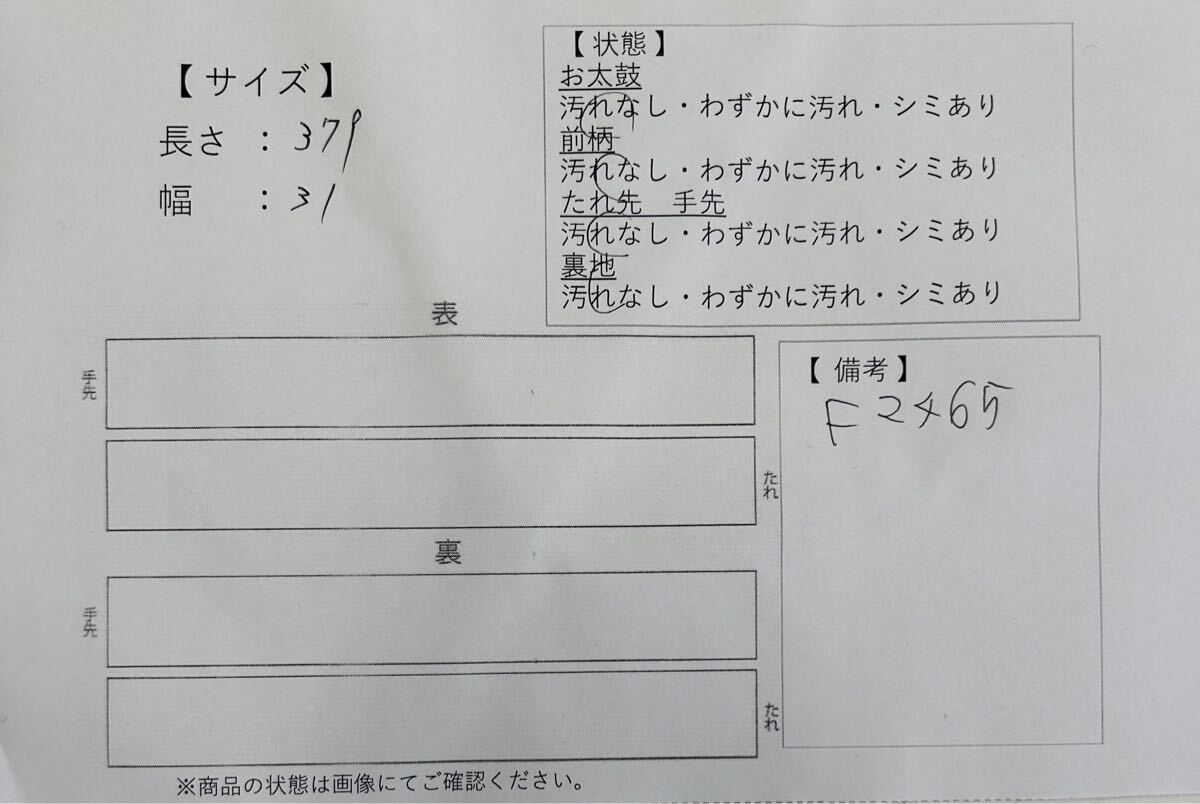 【 サイズ 】
長さ ： 379
幅 ： 31
【 状態 】
お太鼓
汚れなし・わずかに汚れ・シミあり
前柄
汚れなし・わずかに汚れ・シミあり
たれ先　手先
汚れなし・わずかに汚れ・シミあり
裏地
汚れなし・わずかに汚れ・シミあり
表
手先
たれ
裏
手先
たれ
【 備考 】
F2465
※商品の状態は画像にてご確認ください。